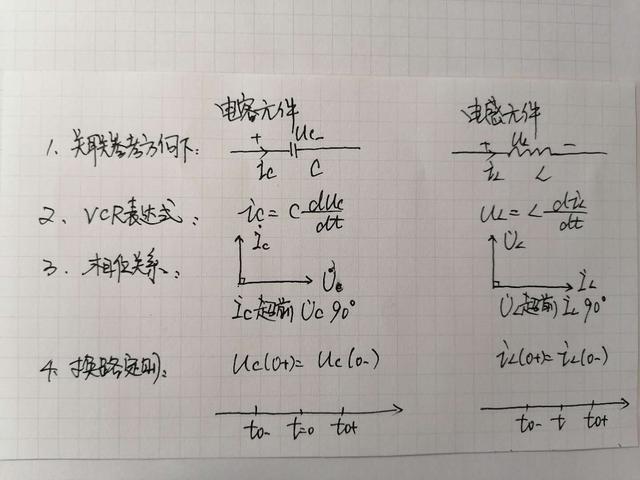 电容元件 电感元件
1、关联参考方向下: + uc - ic C + uL - iL L
2、VCR表达式: ic = C duc/dt uL = L diL/dt
3、相位关系: İc U̇c U̇L İL
İc超前U̇c 90° U̇L超前İL 90°
4、换路定则: uc(0+) = uc(0-) iL(0+) = iL(0-)
t0- t=0 t0+ t0- t t0+